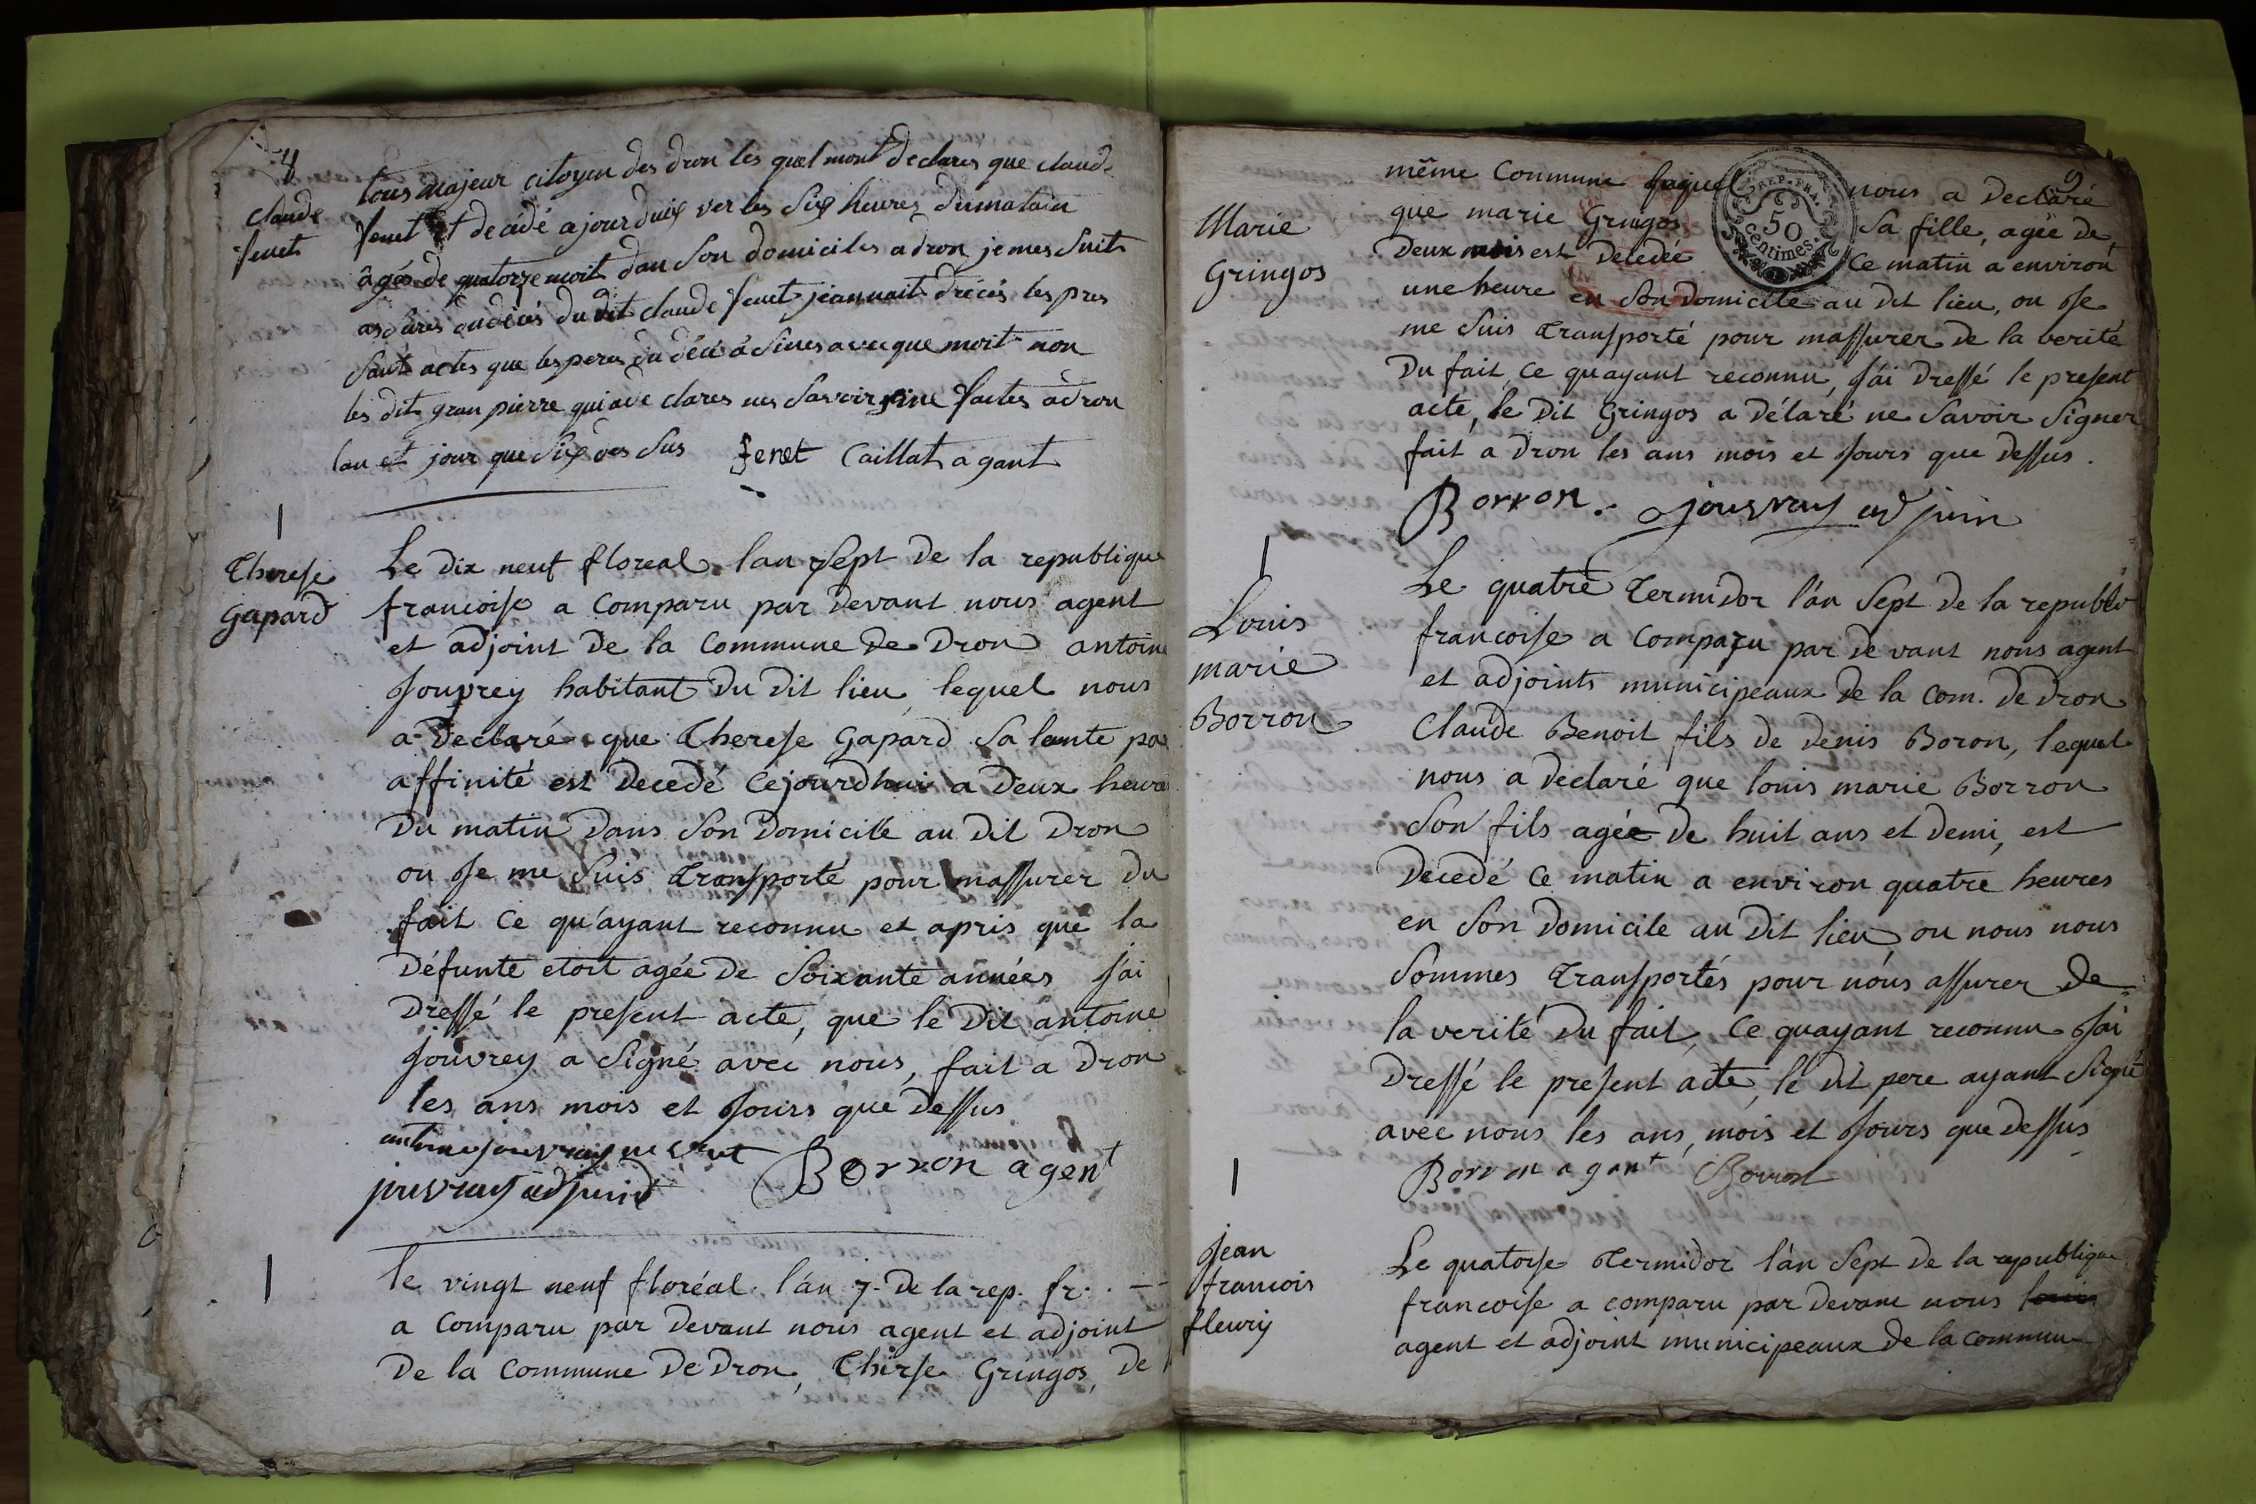 Claude
fenet
tous majeur citoyen des dron les quel mont declares que claud
fenet et décédé ajourduix ver les Six heures dumatain
âgés de quatorze moit dan Son domiciles adron je mes Suits
du dit claude fenet jeannait drécés les pres
Sant actes que les peres du a Sines avecque moit non
les dits gran pierre qui a de clares nes Savoir Sine factes adron
lan et jour que Six des Sus fenet Caillat agant
Therese
Gapard
Le dix neuf floreal lan Sept de la republique
francoise a Comparu par devant nous agent
et adjoint de la Commune de Dron antoine
Jouvrey habitant du dit lieu, lequel nous
a declaré que Therese Gapard Sa tante pa
affinité est decedé Cejourdhui a deux heure
du matin dans Son domicile au dit Dron
ou Je me Suis Transporté pour massurer du
fait Ce qu'ayant reconnu et apris que la
défunte etoit agée de Soixante années J'ai
dressé le present acte, que le dit antoine
Jouvrey a Signé avec nous, fait a Dron
les ans mois et Jours que dessus
antoine jouvray
jouvray adjuind Borron agent
le vingt neuf floréal l'an 7. de la rep. fr. . —
a Comparu par devant nous agent et adjoint
De la Commune De Dron, Thérse Gringos, de
9
REP. FRA.
50
centimes
Marie
Gringos
même Commune laquel nous a declaré
que marie Gringos Sa fille, agée de
Deux mois est Decedée Ce matin a environ
une heure en Son domicile au dit lieu, ou Je
me Suis Transporté pour massurer de la verité
Du fait, Ce quayant reconnu, J'ai dressé le present
acte, le dit Gringos a délaré ne Savoir Signer
fait a Dron les ans mois et Jours que dessus.
Borron. jouvray adjuin
Louis
marie
Borron
Le quatre Termidor l'an Sept de la republ
francoise a Comparu par de vant nous agent
et adjoints municipeaux de la com. de dron
Claude Benoit fils de denis Boron, lequel
nous a declaré que louis marie Borron
Son fils agée de huit ans et demi, est
Decedé Ce matin a environ quatre heures
en Son domicile au dit lieu ou nous nous
Sommes Transportés pour nous assurer de
la verité du fait, Ce quayant reconnu J'ai
Dressé le present acte, le dit pere ayant Signé
avec nous les ans, mois et Jours que dessus
Borron agant Borron
Jean
francois
fleury
Le quatorse Termidor l'an Sept de la republique
francoise a comparu par devant nous
agent et adjoint municipeaux de la commun